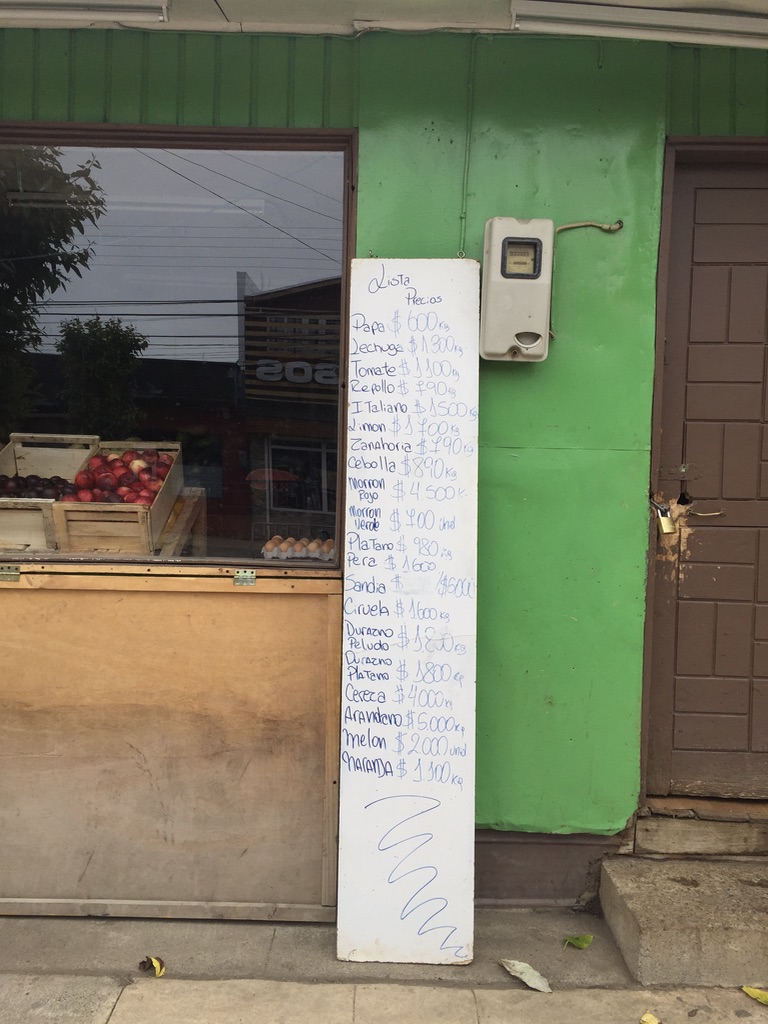 Lista
Precios
Papa $ 600 Kg
Lechuga $ 1300 Kg
Tomate $ 1100 Kg
Repollo $ 790 Kg
ITaliano $ 1500 Kg
Limon $ 1700 Kg
Zanahoria $ 790 Kg
Cebolla $ 890 Kg
Morron
Rojo $ 4.500 K
Morron
Verde $ 700 und
Platano $ 980 Kg
Pera $ 1600
Sandia $ /$5000
Ciruela $ 1600 Kg
Durazno
Peludo $ 1800 Kg
Durazno
Platano $ 1800 Kg
Cereza $ 4000 Kg
Arandano $ 5.000 Kg
Melon $ 2000 und
Naranja $ 1.100 Kg